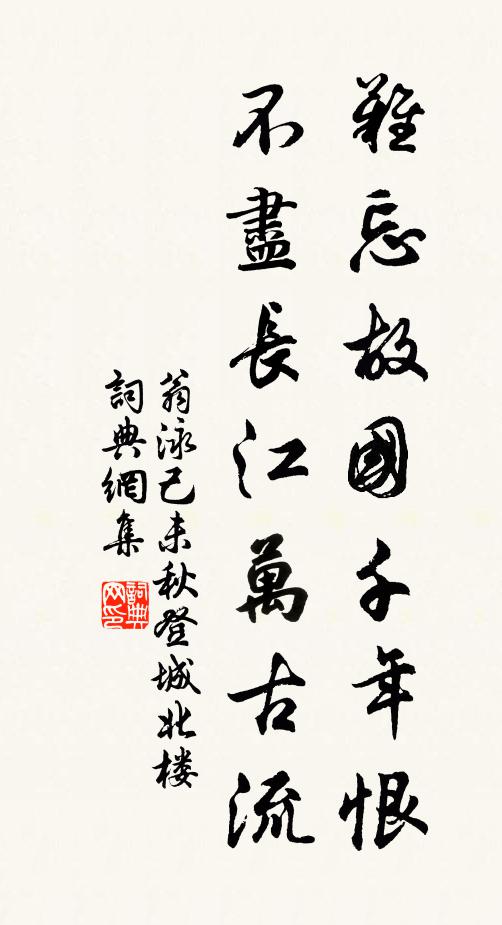 難忘故國千年恨
不盡長江萬古流
翁泳己未秋登城北楼
詞典網集
詞典网印